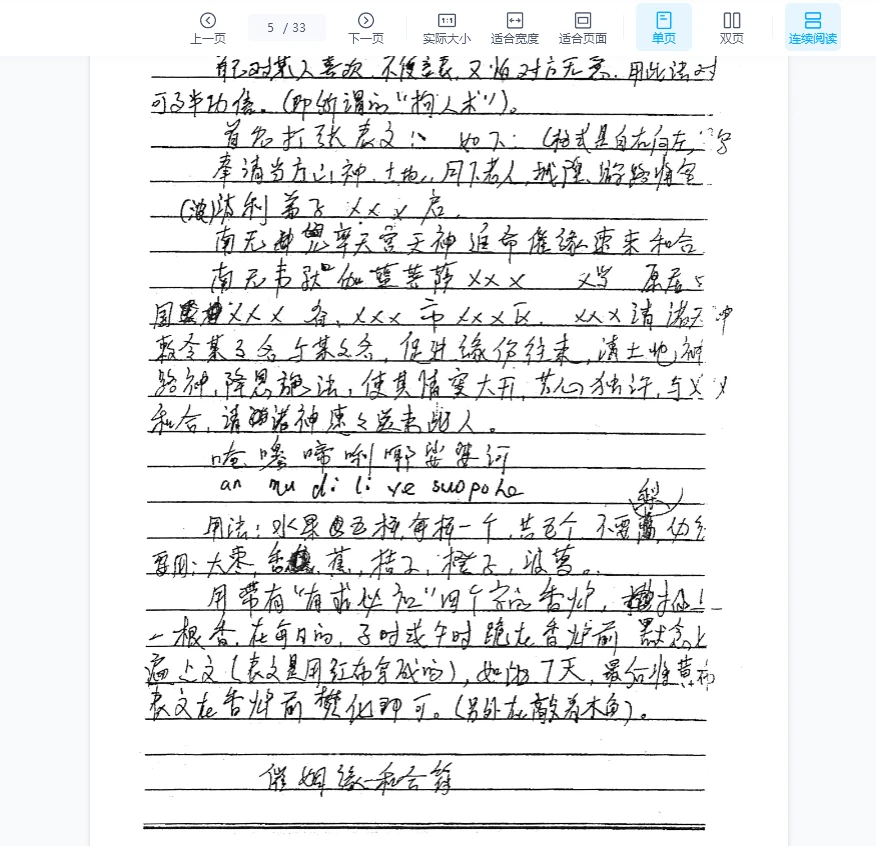 上一页
5 / 33
下一页
1:1
实际大小
适合宽度
适合页面
单页
双页
连续阅读
自己对某人喜欢,不便言表,又怕对方无意,用此法对
可事半功倍。(即所谓的"拘人术")。
首名打张表文:如下:(格式是自右向左,写
奉请当方山神、土地、月下老人,城隍,游路将
弟子 XXX 启,
南无 率天宫天神 催缘速来和合
南无韦驮 伽蓝菩萨 XXX X岁 原居
国 XXX 省、XXX 市 XXX区、XXX 请诸
敕令某名与某名,促 缘 往来,请土地神
路神,降恩施法,使其情窦大开,芳心独许,与XX
和合,请诸神速速送来此人。
唵 嚕啼唎耶娑婆诃
an nu di li ye suopohe
梨
用法:水果 五样,每样一个,共五个,不要
要用:大枣,香蕉,桔子,橙子,菠萝。
用带有"有求必应"四个字的香炉,
一根香,在每日的,子时或午时跪在香炉前 默念
遍上文(表文是用红布写成的),如此7天,最后将黄布
表文在香炉前焚化即可。(另外在敲着木鱼)。
催姻缘和合符